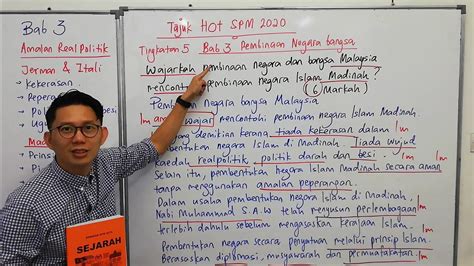 Bab 3
Amalan Real Politik
Jerman & Itali
- Kekerasan
- Pepera
- Po
- D
Ma
- Prins
- Pi
Tajuk HOT SPM 2020
Tingkatan 5 Bab 3 Pembinaan Negara bangsa
Wajarkah pembinaan negara dan bangsa Malaysia
mencontohi pembinaan negara Islam Madinah?
(6 Markah)
Pembinaan negara bangsa Malaysia
1m amat wajar mencontohi pembinaan negara Islam Madinah.
yang demikian kerana tiada kekerasan dalam 1m
bentukan negara Islam di Madinah. Tiada wujud
kaedah realpolitik, politik darah dan besi. 1m
Selain itu, pembentukan negara Islam Madinah secara aman
tanpa menggunakan amalan peperangan. 1m
Dalam usaha pembentukan negara Islam di Madinah,
Nabi Muhammad S.A.W telah menyusun perlembagaan 1m
terlebih dahulu sebelum mengasaskan kerajaan Islam.
Pembentukan negara secara penyatuan melalui prinsip Islam. 1m
Berasaskan diplomasi, musyawarah dan permuafakatan. 1m
SEJARAH